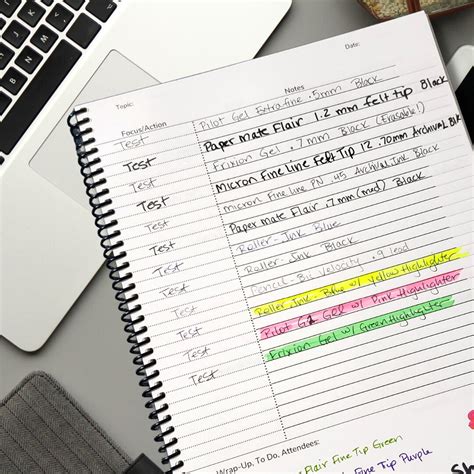 Topic: Date:
Focus/Action Notes
Test Pilot Gel Extra fine .5mm Black
Test Paper mate Flair 1.2 mm felt tip Black
Test Frixion Gel .7mm Black (Erasable!)
Test Micron Fine Line Felt Tip 12 .70mm Archival Blk
Test Micron Fine Line PN .45 Archival Ink Black
Test Paper mate Flair .7mm (med) Black
Test Roller-Ink Blue
Test Roller-Ink Black
Test Pencil-Bic Velocity .9 lead
Test Roller Ink-Blue w/ Yellow Highlighter
Test Pilot G2 Gel w/ Pink Highlighter
Test Frixion Gel w/ Green Highlighter
Test
Wrap-Up, To Do, Attendees:
Flair Fine Tip Green
Fine Tip Purple